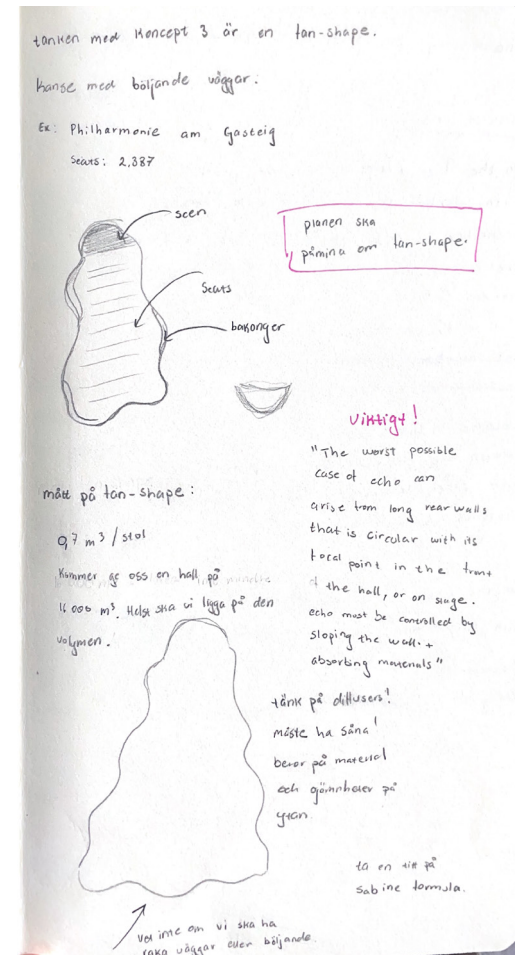 tanken med koncept 3 är en fan-shape.
Kanse med böljande väggar.
Ex: Philharmonie am Gasteig
Seats: 2,387
scen
planen ska
påmina om fan-shape.
Seats
bakonger
Viktigt!
"The worst possible
case of echo can
arise from long rear walls
that is circular with its
focal point in the front
of the hall, or on stage.
echo must be controlled by
sloping the wall. +
absorbing materials"
mått på fan-shape:
0,7 m³/stol
Kommer ge oss en hall på
16 000 m³. Helst ska vi ligga på den
volymen.
tänk på diffusers!
måste ha såna!
beror på material
och ojämnheter på
ytan.
ta en titt på
Sabine formula.
Vet inte om vi ska ha
raka väggar eller böljande